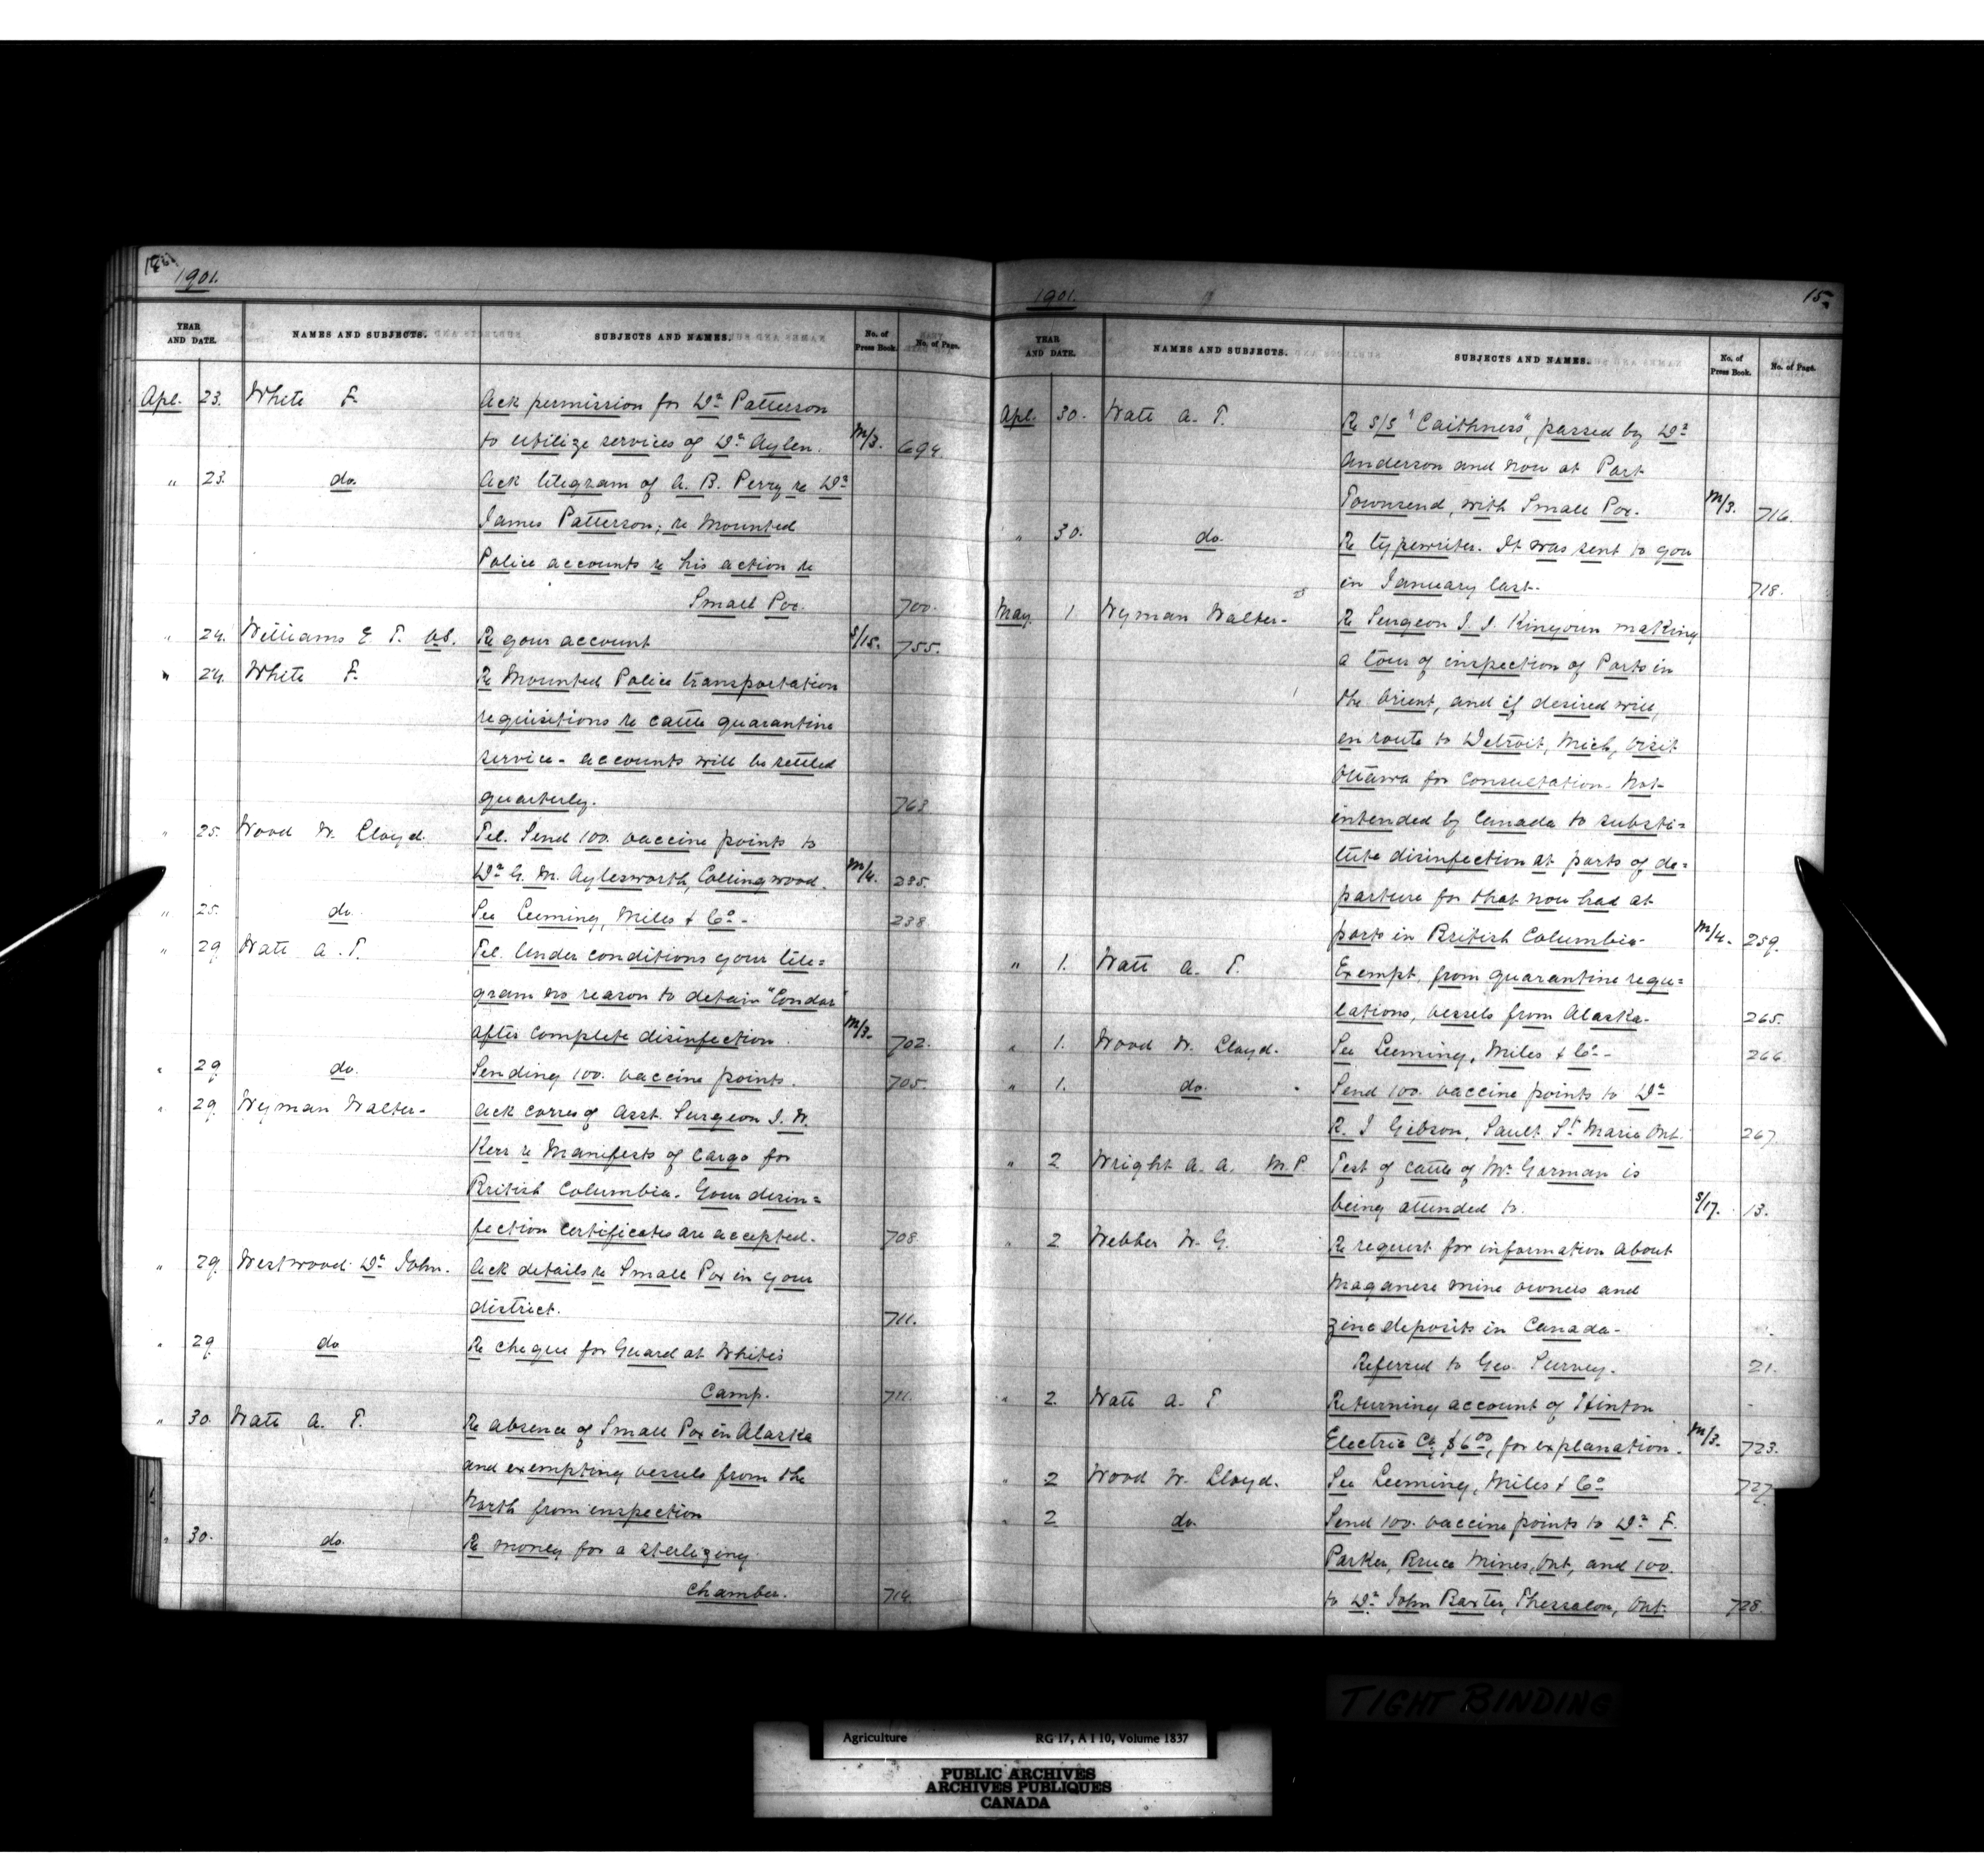 1901.
YEAR AND DATE.
NAMES AND SUBJECTS.
SUBJECTS AND NAMES.
No. of Press Book.
No. of Page.
Apl. 23. White F. Ack permission for Dr Patterson
to utilize services of Dr Aylen. M/3. 694.
" 23. do. Ack telegram of A. B. Perry re Dr
James Patterson; re Mounted
Police accounts re his action re
Small Pox. 700.
" 24. Williams E. T. V.S. Re your account S/15. 755.
" 24. White F. Re Mounted Police transportation
requisitions re cattle quarantine
service - accounts will be settled
quarterly. 763
" 25. Wood W. Lloyd. Tel. Send 100. vaccine points to
Dr G. M. Aylesworth, Collingwood. M/4. 235.
" 25. do. See Leeming, Miles & Co - 238
" 29. Watt A. T. Tel. Under conditions your tele=
gram no reason to detain "Condor"
after complete disinfection. M/3. 702.
" 29. do. Sending 100. vaccine points. 705
" 29. Wyman Walter - Ack corres of Asst. Surgeon J. W.
Kerr re Manifests of Cargo for
British Columbia. Your disin=
fection certificates are accepted. 708.
" 29. Westwood Dr John. Ack details re Small Pox in your
district. 711.
" 29. do Re cheque for Guard at White's
Camp. 711.
" 30. Watt A. T. Re absence of Small Pox in Alaska
and exempting vessels from the
North from inspection
" 30. do. Re money for a sterlizing
Chamber. 714.
1901.
15.
YEAR AND DATE.
NAMES AND SUBJECTS.
SUBJECTS AND NAMES.
No. of Press Book.
No. of Page.
Apl. 30. Watt A. T. Re S/S "Caithness", passed by Dr
Anderson and now at Port
Townsend, with Small Pox. M/3. 716.
" 30. do. Re typewriter. It was sent to you
in January last. 718.
May. 1 Wyman Walter - Re Surgeon J. J. Kinyoun making
a tour of inspection of Ports in
the Orient, and if desired will,
en route to Detroit, Mich, visit
Ottawa for consultation. Not
intended by Canada to substi=
tute disinfection at ports of de=
parture for that now had at
ports in British Columbia - M/4. 259.
" 1. Watt A. T. Exempt, from quarantine regu=
lations, vessels from Alaska - 265.
" 1. Wood W. Lloyd. See Leeming, Miles & Co - 266
" 1. do. Send 100. vaccine points to Dr
R. J Gibson, Sault St Marie Ont. 267.
" 2 Wright A. A. M.P. Test of cattle of Mr Gorman is
being attended to. S/17. 13.
" 2 Webber W. G. Re request for information about
Maganese mine owners and
zinc deposits in Canada -
Referred to Geo. Survey. 21.
" 2. Watt A. T Returning account of Hinton
Electric Co, $6.00, for explanation. M/3. 723.
" 2 Wood W. Lloyd. See Leeming, Miles & Co 727.
" 2 do. Send 100. vaccine points to Dr F.
Parker, Bruce Mines, Ont, and 100.
to Dr John Baxter, Thessalon, Ont. 728.
TIGHT BINDING
Agriculture RG 17, A I 10, Volume 1837
PUBLIC ARCHIVES
ARCHIVES PUBLIQUES
CANADA